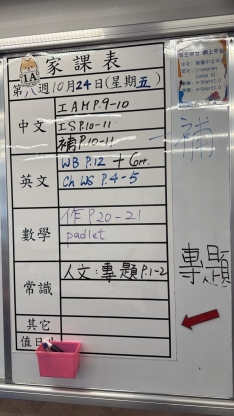 1A
家課表
第八週10月24日(星期五)
中文
工AM P.9-10
工S P.10-11
補 P.10-11
英文
WB P.12 + Corr.
Ch WS P.4-5
數學
作 P.20-21
padlet
常識
人文：專題 P.1-2
其它
值日
補
專題